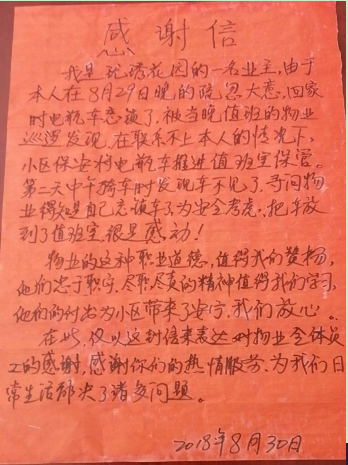 感谢信
我是玩琇花园的一名业主,由于
本人在8月29日晚的疏忽大意,回家
时电瓶车忘锁了,被当晚值班的物业
巡逻发现,在联系不上本人的情况下,
小区保安将电瓶车推进值班室保管。
第二天中午骑车时发现车不见了,寻问物
业得知是自己忘锁车了,为安全考虑,把车放
到了值班室,很是感动!
物业的这种职业道德,值得我们赞扬,
他们忠于职守、尽职尽责的精神值得我们学习,
他们的付出为小区带来了安宁,我们放心。
在此,仅以这封信来表达对物业全体员
工的感谢,感谢你们的热情服务,为我们日
常生活解决了诸多问题。
2018年8月30日